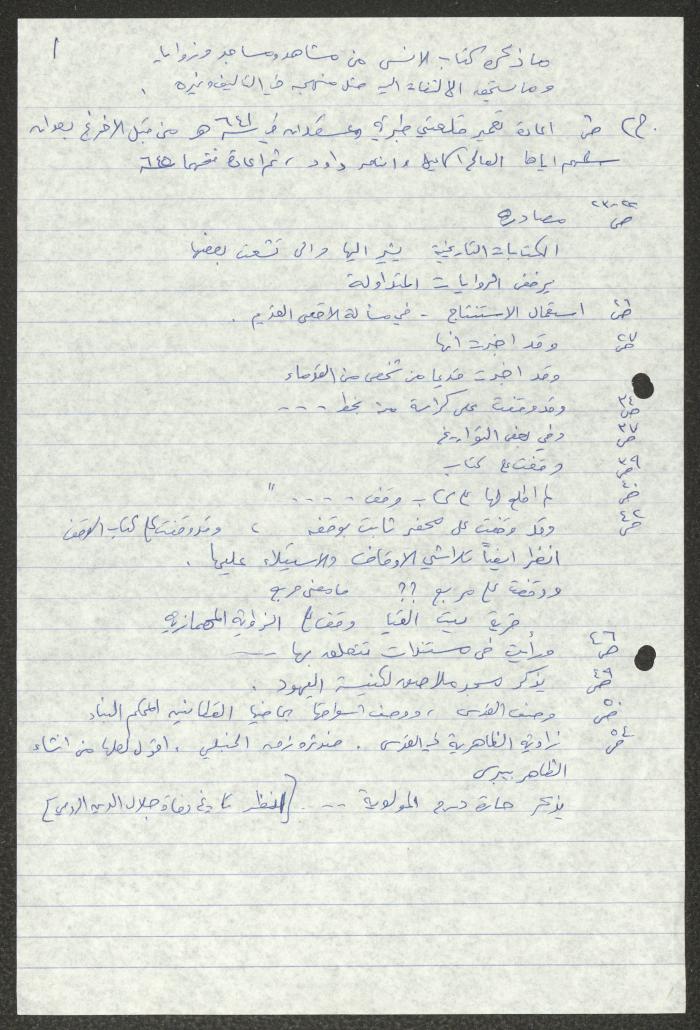 ١
ما ذكره كتاب الانس من مشاهد ومساجد وزوايا
وما يستحق الالتفات اليه مثل منهجه في التأليف وغيره .
ج٢ ص اعادة تعمير قلعتي طبرية وعسقلان في سنة ٦٤١ هـ من قبل الافرنج بعد ان
سلمهم اياها الصالح اسماعيل والناصر داود ، ثم اعادة فتحهما ٦٤٥
ص ٢٢-٢٣ مصادره
الكتابات التاريخية يشير اليها والى تشعث بعضها
يرفض الروايات المتداولة
ص استعمال الاستنتاج - في مسألة الاقصى القديم .
ص ٢٧ وقد اخبرت انها
وقد اخبرت قديما من شخص من القدماء
ص ٣٤ وقد وقفت على كراسة من بخط ---
ص ٣٧ وفي بعض التواريخ
ص ٣٩ وقفت على كتاب
ص ٤٠ لم اطلع لها على كتاب وقف ---- "
ص ٤٢ وقد وقفت على محضر ثابت بوقفه ، وقد وقفت على كتاب الوقف
انظر ايضاً تلاشي الاوقاف والاستيلاء عليها .
ووقفه على مربع ؟؟ ما معنى مربع
قرية بيت لقيا وقف على الزاوية المهمازية
ص ٤٦ ورأيت في مستندات تتعلق بها ---
ص ٤٩ يذكر مسجد ملاصق لكنيسة اليهود .
ص ٥٠ وصف القدس ، ووصف اسواقها بما فيها القطانين المحكم البناء
ص ٥٤ زاوية الظاهرية في القدس . الحنبلي . اقول لعلها من انشاء
الظاهر بيبرس
يذكر حارة درج المولوية --- [انظر تاريخ وفاة جلال الدين الرومي]